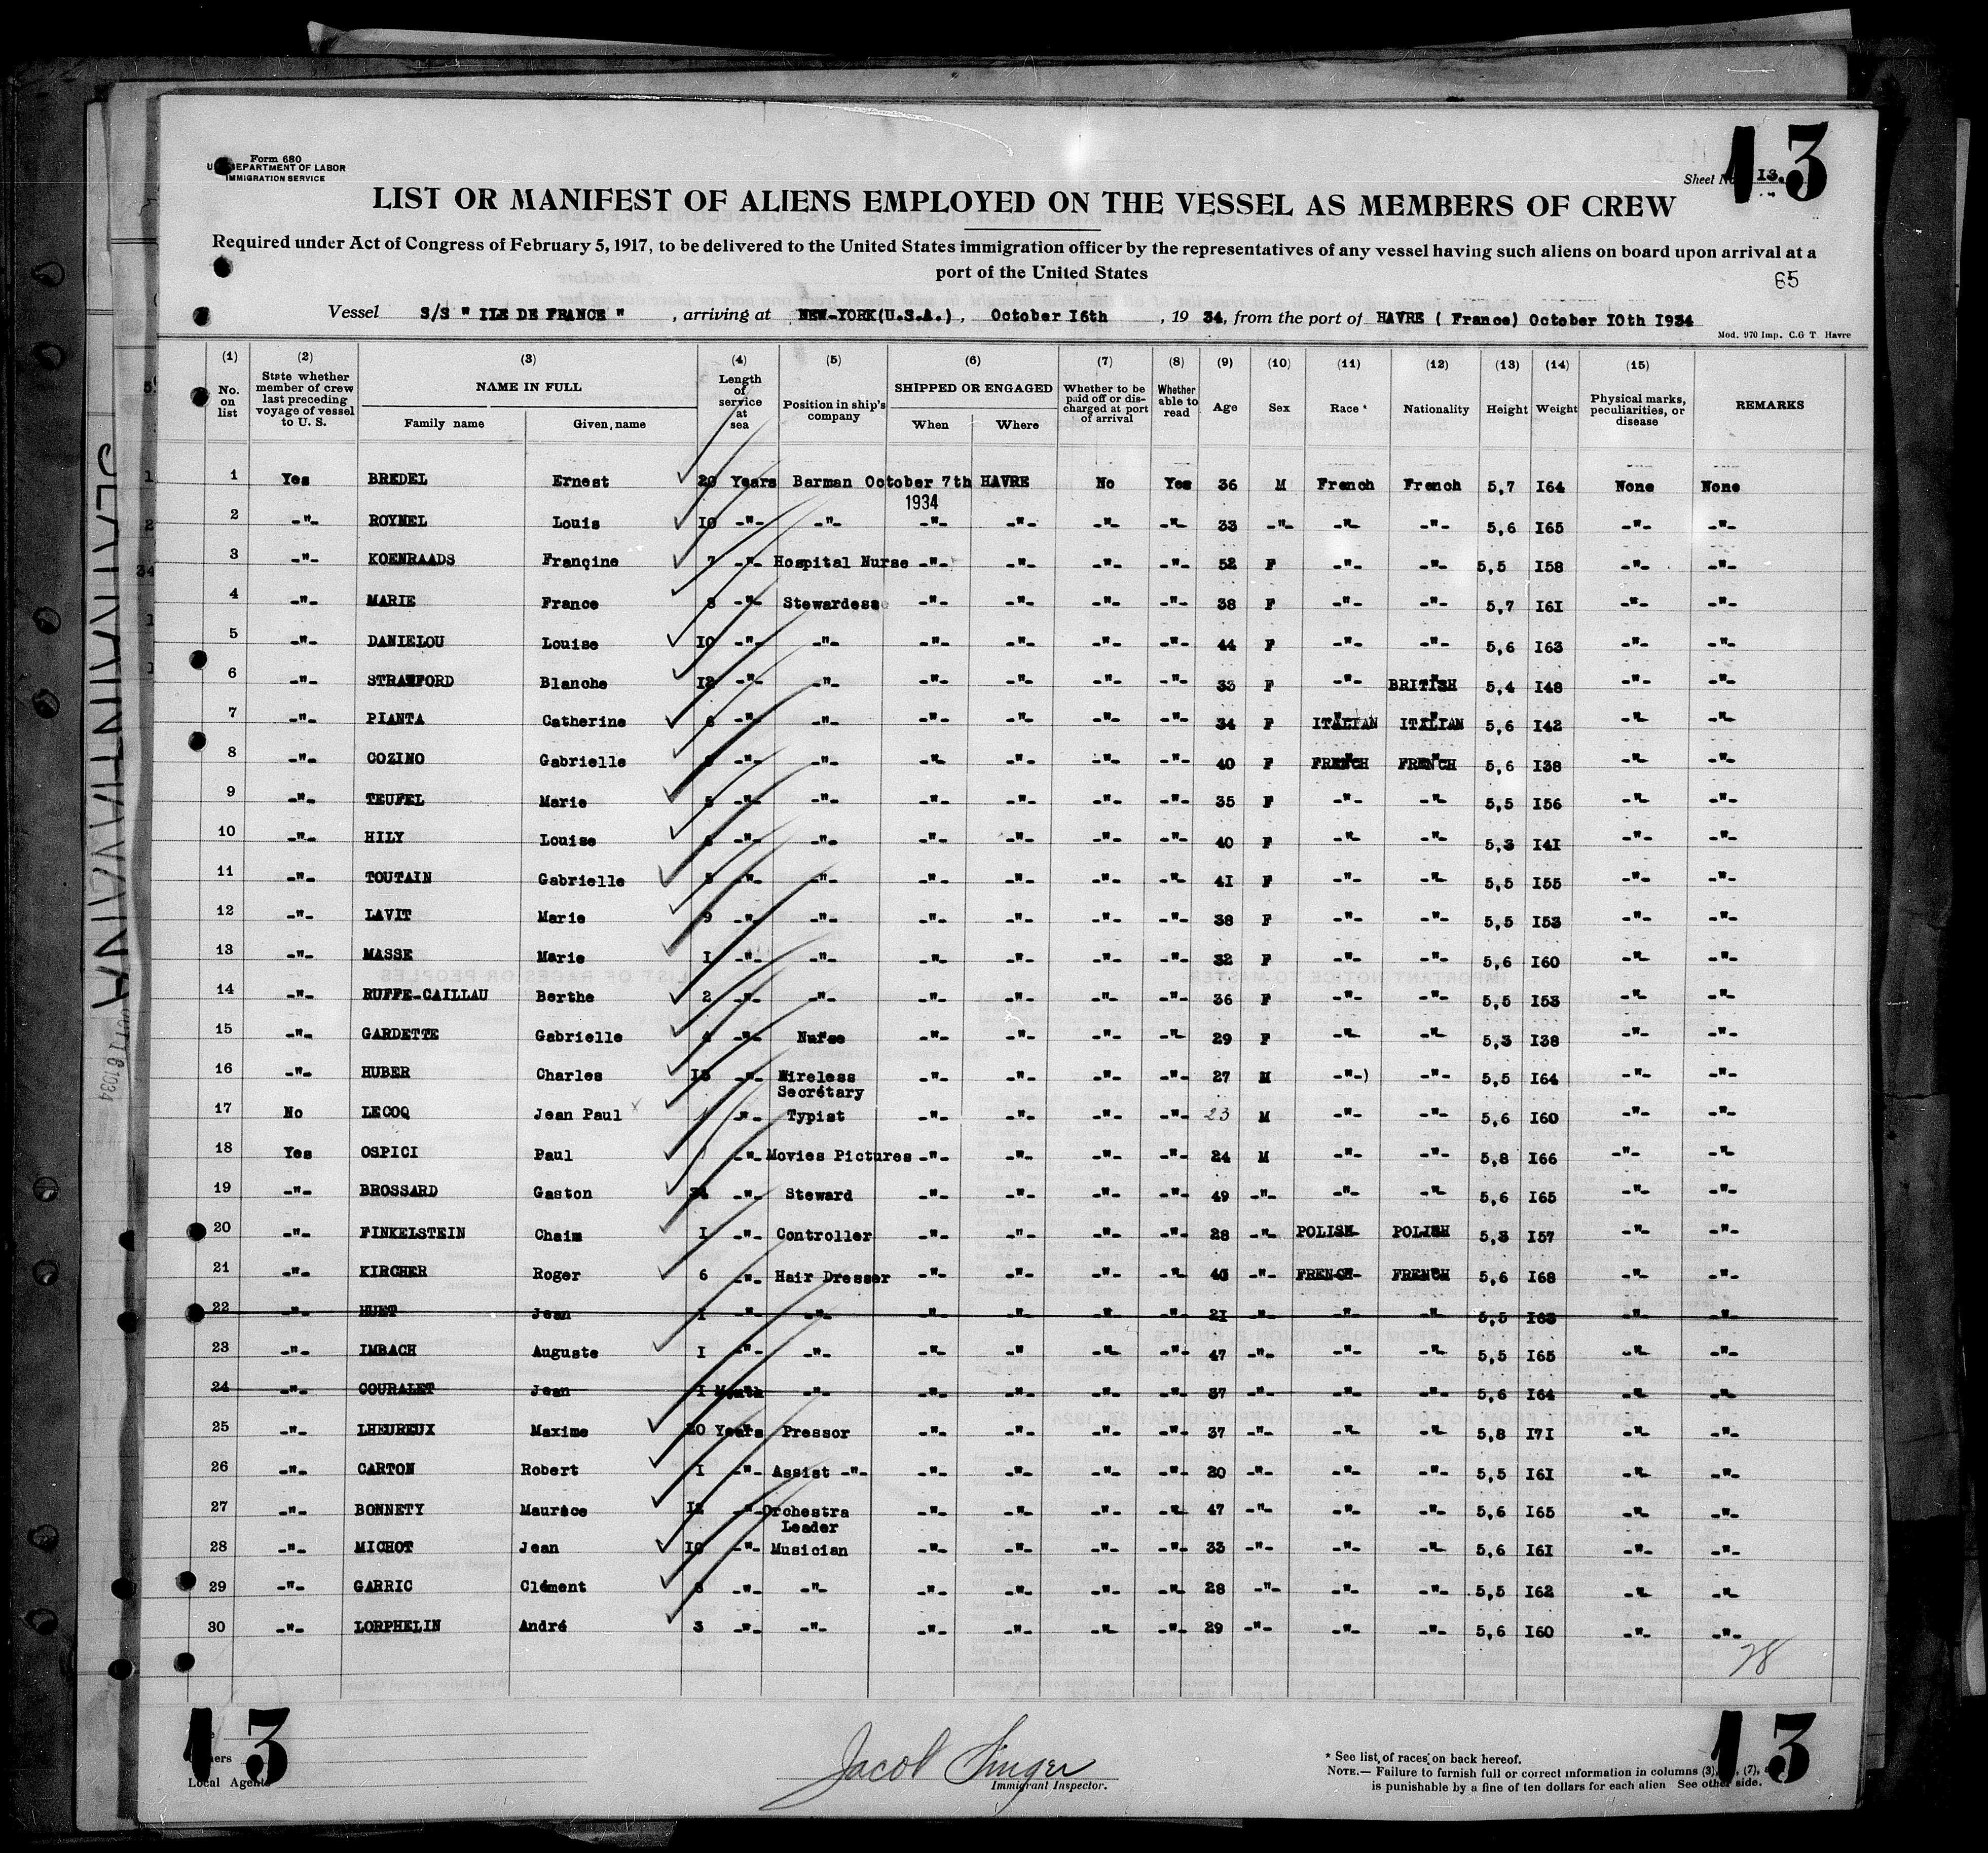 Form 680
U.S. DEPARTMENT OF LABOR
IMMIGRATION SERVICE
13
Sheet No. I3.
LIST OR MANIFEST OF ALIENS EMPLOYED ON THE VESSEL AS MEMBERS OF CREW
Required under Act of Congress of February 5, 1917, to be delivered to the United States immigration officer by the representatives of any vessel having such aliens on board upon arrival at a
port of the United States
65
Vessel S/S " ILE DE FRANCE " , arriving at NEW-YORK(U.S.A.) , October I6th , 19 34, from the port of HAVRE ( France) October I0th I934
Mod. 970 Imp. C.G T. Havre
(1) (2) (3) (4) (5) (6) (7) (8) (9) (10) (11) (12) (13) (14) (15)
No. on list State whether member of crew last preceding voyage of vessel to U. S. NAME IN FULL Family name Given name Length of service at sea Position in ship's company SHIPPED OR ENGAGED When Where Whether to be paid off or discharged at port of arrival Whether able to read Age Sex Race * Nationality Height Weight Physical marks, peculiarities, or disease REMARKS
1 Yes BREDEL Ernest 20 Years Barman October 7th HAVRE No Yes 36 M French French 5,7 I64 None None
1934
2 -"- ROYNEL Louis I0 -"- -"- -"- -"- -"- -"- 33 -"- -"- -"- 5,6 I65 -"- -"-
3 -"- KOENRAADS Françine 7 -"- Hospital Nurse -"- -"- -"- -"- 52 F -"- -"- 5,5 I58 -"- -"-
4 -"- MARIE France 8 -"- Stewardess -"- -"- -"- -"- 38 F -"- -"- 5,7 I6I -"- -"-
5 -"- DANIELOU Louise I0 -"- -"- -"- -"- -"- -"- 44 F -"- -"- 5,6 I63 -"- -"-
6 -"- STRAWFORD Blanche I2 -"- -"- -"- -"- -"- -"- 33 F -"- BRITISH 5,4 I48 -"- -"-
7 -"- PIANTA Catherine 6 -"- -"- -"- -"- -"- -"- 34 F ITALIAN ITALIAN 5,6 I42 -"- -"-
8 -"- COZINO Gabrielle -"- -"- -"- -"- -"- -"- 40 F FRENCH FRENCH 5,6 I38 -"- -"-
9 -"- TEUFEL Marie 5 -"- -"- -"- -"- -"- -"- 35 F -"- -"- 5,5 I56 -"- -"-
10 -"- HILY Louise -"- -"- -"- -"- -"- -"- 40 F -"- -"- 5,3 I4I -"- -"-
11 -"- TOUTAIN Gabrielle 5 -"- -"- -"- -"- -"- -"- 4I F -"- -"- 5,5 I55 -"- -"-
12 -"- LAVIT Marie 9 -"- -"- -"- -"- -"- -"- 38 F -"- -"- 5,5 I53 -"- -"-
13 -"- MASSE Marie I -"- -"- -"- -"- -"- -"- 32 F -"- -"- 5,6 I60 -"- -"-
14 -"- RUFFE-CAILLAU Berthe 2 -"- -"- -"- -"- -"- -"- 36 F -"- -"- 5,5 I53 -"- -"-
15 -"- GARDETTE Gabrielle 4 -"- Nurse -"- -"- -"- -"- 29 F -"- -"- 5,3 I38 -"- -"-
16 -"- HUBER Charles -"- Wireless -"- -"- -"- -"- 27 M -"-) -"- 5,5 I64 -"- -"-
Secrétary
17 No LECOQ Jean Paul x -"- Typist -"- -"- -"- -"- 23 M -"- -"- 5,6 I60 -"- -"-
18 Yes OSPICI Paul -"- Movies Pictures -"- -"- -"- -"- 24 M -"- -"- 5,8 I66 -"- -"-
19 -"- BROSSARD Gaston -"- Steward -"- -"- -"- -"- 49 -"- -"- -"- 5,6 I65 -"- -"-
20 -"- FINKELSTEIN Chaim I -"- Controller -"- -"- -"- -"- 28 -"- POLISH POLISH 5,3 I57 -"- -"-
21 -"- KIRCHER Roger 6 -"- Hair Dresser -"- -"- -"- -"- -"- FRENCH FRENCH 5,6 I68 -"- -"-
22 -"- HUET Jean I -"- -"- -"- -"- -"- -"- 2I -"- -"- -"- 5,5 -"- -"-
23 -"- IMBACH Auguste I -"- -"- -"- -"- -"- -"- 47 -"- -"- -"- 5,5 I65 -"- -"-
24 -"- COURALET Jean I Month -"- -"- -"- -"- -"- 37 -"- -"- -"- 5,6 I64 -"- -"-
25 -"- LHEUREUX Maxime 20 Years Pressor -"- -"- -"- -"- 37 -"- -"- -"- 5,8 I7I -"- -"-
26 -"- CARTON Robert I -"- Assist -"- -"- -"- -"- -"- 20 -"- -"- -"- 5,5 I6I -"- -"-
27 -"- BONNETY Maurice I2 -"- Orchestra -"- -"- -"- -"- 47 -"- -"- -"- 5,6 I65 -"- -"-
Leader
28 -"- MICHOT Jean I0 -"- Musician -"- -"- -"- -"- 33 -"- -"- -"- 5,6 I6I -"- -"-
29 -"- GARRIC Clément -"- -"- -"- -"- -"- -"- 28 -"- -"- -"- 5,5 I62 -"- -"-
30 -"- LORPHELIN André 3 -"- -"- -"- -"- -"- -"- 29 -"- -"- -"- 5,6 I60 -"- -"-
28
13
Local Agents
Jacob Singer
Immigrant Inspector.
* See list of races on back hereof.
NOTE.— Failure to furnish full or correct information in columns (3), (7),
is punishable by a fine of ten dollars for each alien See other side.
13